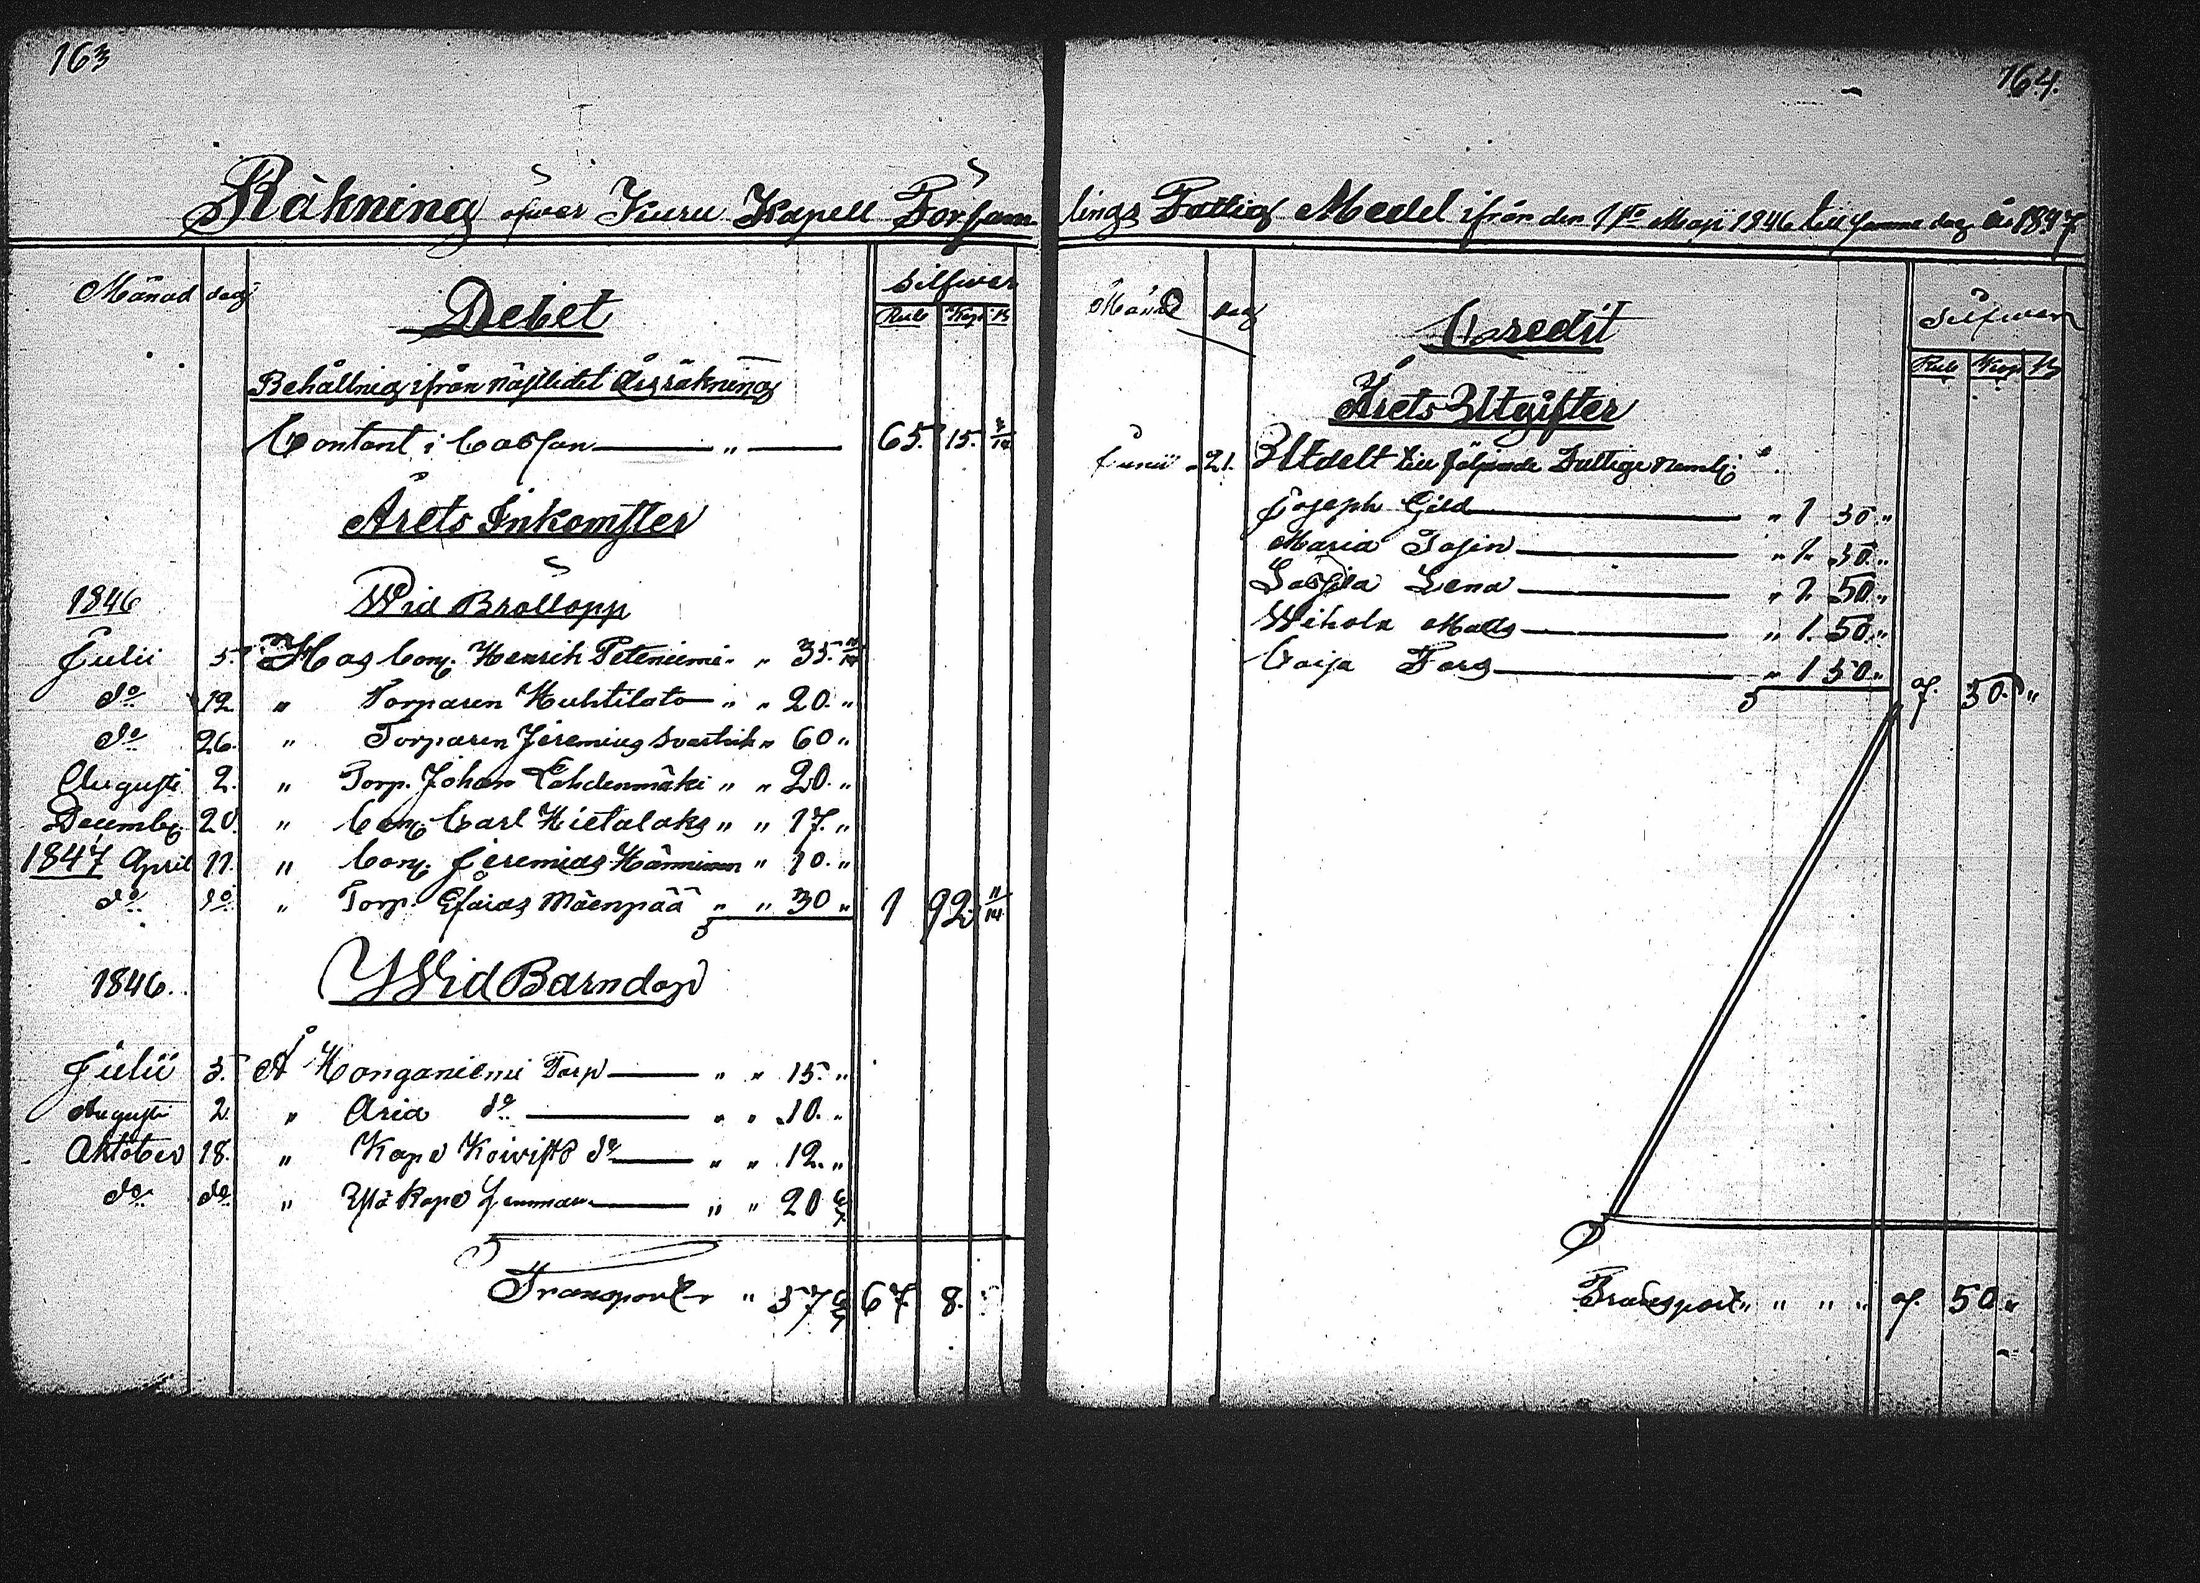 163
Räkning öfwer Kuru Kapell Församlings Fattigs Medel ifrån den 1sta Maji 1846 till samma dag år 1847
Månad dag Debet Silfwer
Rub Kop
Behållning ifrån näslledet Årsräkning
Contant i Cassan — " — 65. 15. 2/14
Årets Inkomster
1846 Wid Bröllopp
Julii 5. Hos Bon. Henrik Peteniemi " " 35.
do 12 " Torparen Huhtilato " " 20. "
do 26. " Torparen Jeremias " 60 "
Augusti 2. " Torp. Johan Lahdenmäki " " 20. "
Decemb. 20. " Bon. Carl Hietalaks " " 17. "
1847 April 11. " Bon. Jeremias Hänninen " 10. "
do do " Torp. Esaias Mäenpää " " 30 " 1 92. 11/14
1846. Wid Barndop
Julii 5. Å Konganiemi Torp — " " 15. "
Augusti 2. " Aria do — " " 10. "
Oktober 18. " Kapo Koivisto do — " " 12. "
do do " Kapo — " " 20 6/7
Transport " 57 6/7 67 8.
164.
Månad dag Credit Silfwer
Rub Kop
Årets Utgifter
Junii 21. Utdelt till följande Fattige neml:
Joseph Gild — " 1 50 "
Maria — " 1. 50. "
Lena — " 1. 50. "
Wihola Matts — " 1. 50. "
Caija Fors — " 1 50. " 7. 50. "
Transport " " " " 7. 50. "